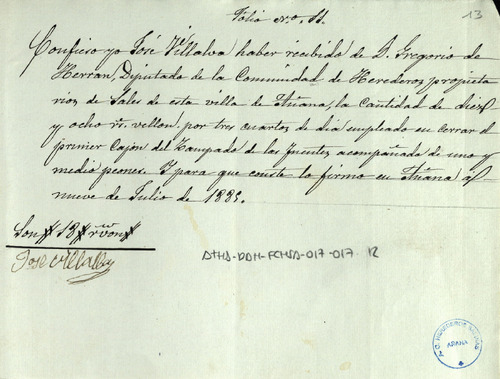 Folio nro. 11.
13
Confieso yo José Villalva haber recibido de D. Gregorio de
Herran, Diputado de la Comunidad de Herederos propieta
rios de Sales de esta villa de Añana, la cantidad de diez
y ocho rs. vellon por tres cuartos de dia empleado en cerrar el
primer Cajon del Tampado de las fuentes acompañado de uno y
medio peones. Y para que conste lo firmo en Añana á
nueve de Julio de 1885.
Son 18 rs. von
José Villalva
ATHA-DAH-FCHSA-017-017. 12
HEREDEROS
AÑANA